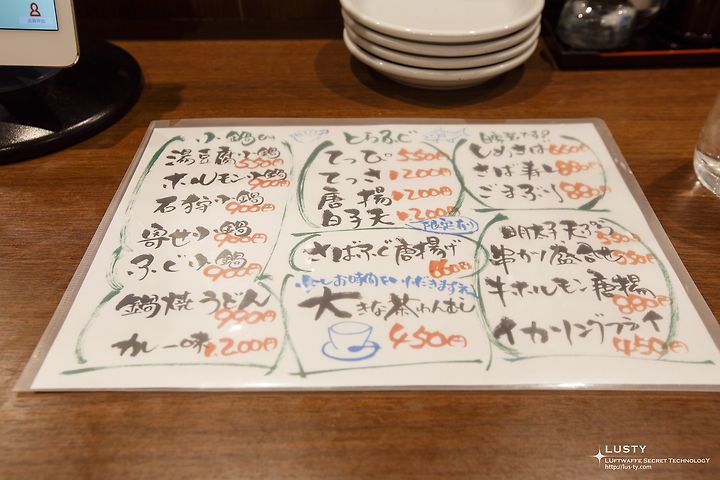 小鍋
湯豆腐小鍋 550円
ホルモン小鍋 900円
石狩小鍋 900円
寄せ小鍋 900円
ふぐ小鍋 900円
鍋焼うどん 990円
カレー味 1,200円
とらふぐ
てっぴ 550円
てっさ 1,200円
唐揚 1,200円
白子天 1,200円
さばふぐ唐揚げ 660円
少しお時間をいただきます
大きな茶わんむし
450円
しめさば 660円
さば寿し 880円
ごまぶり 880円
明太子天ぷら 550円
串かつ盛合せ 550円
牛ホルモン唐揚 880円
イカリングフライ 450円
LUSTY
LUFTWAFFE SECRET TECHNOLOGY
http://lus-ty.com